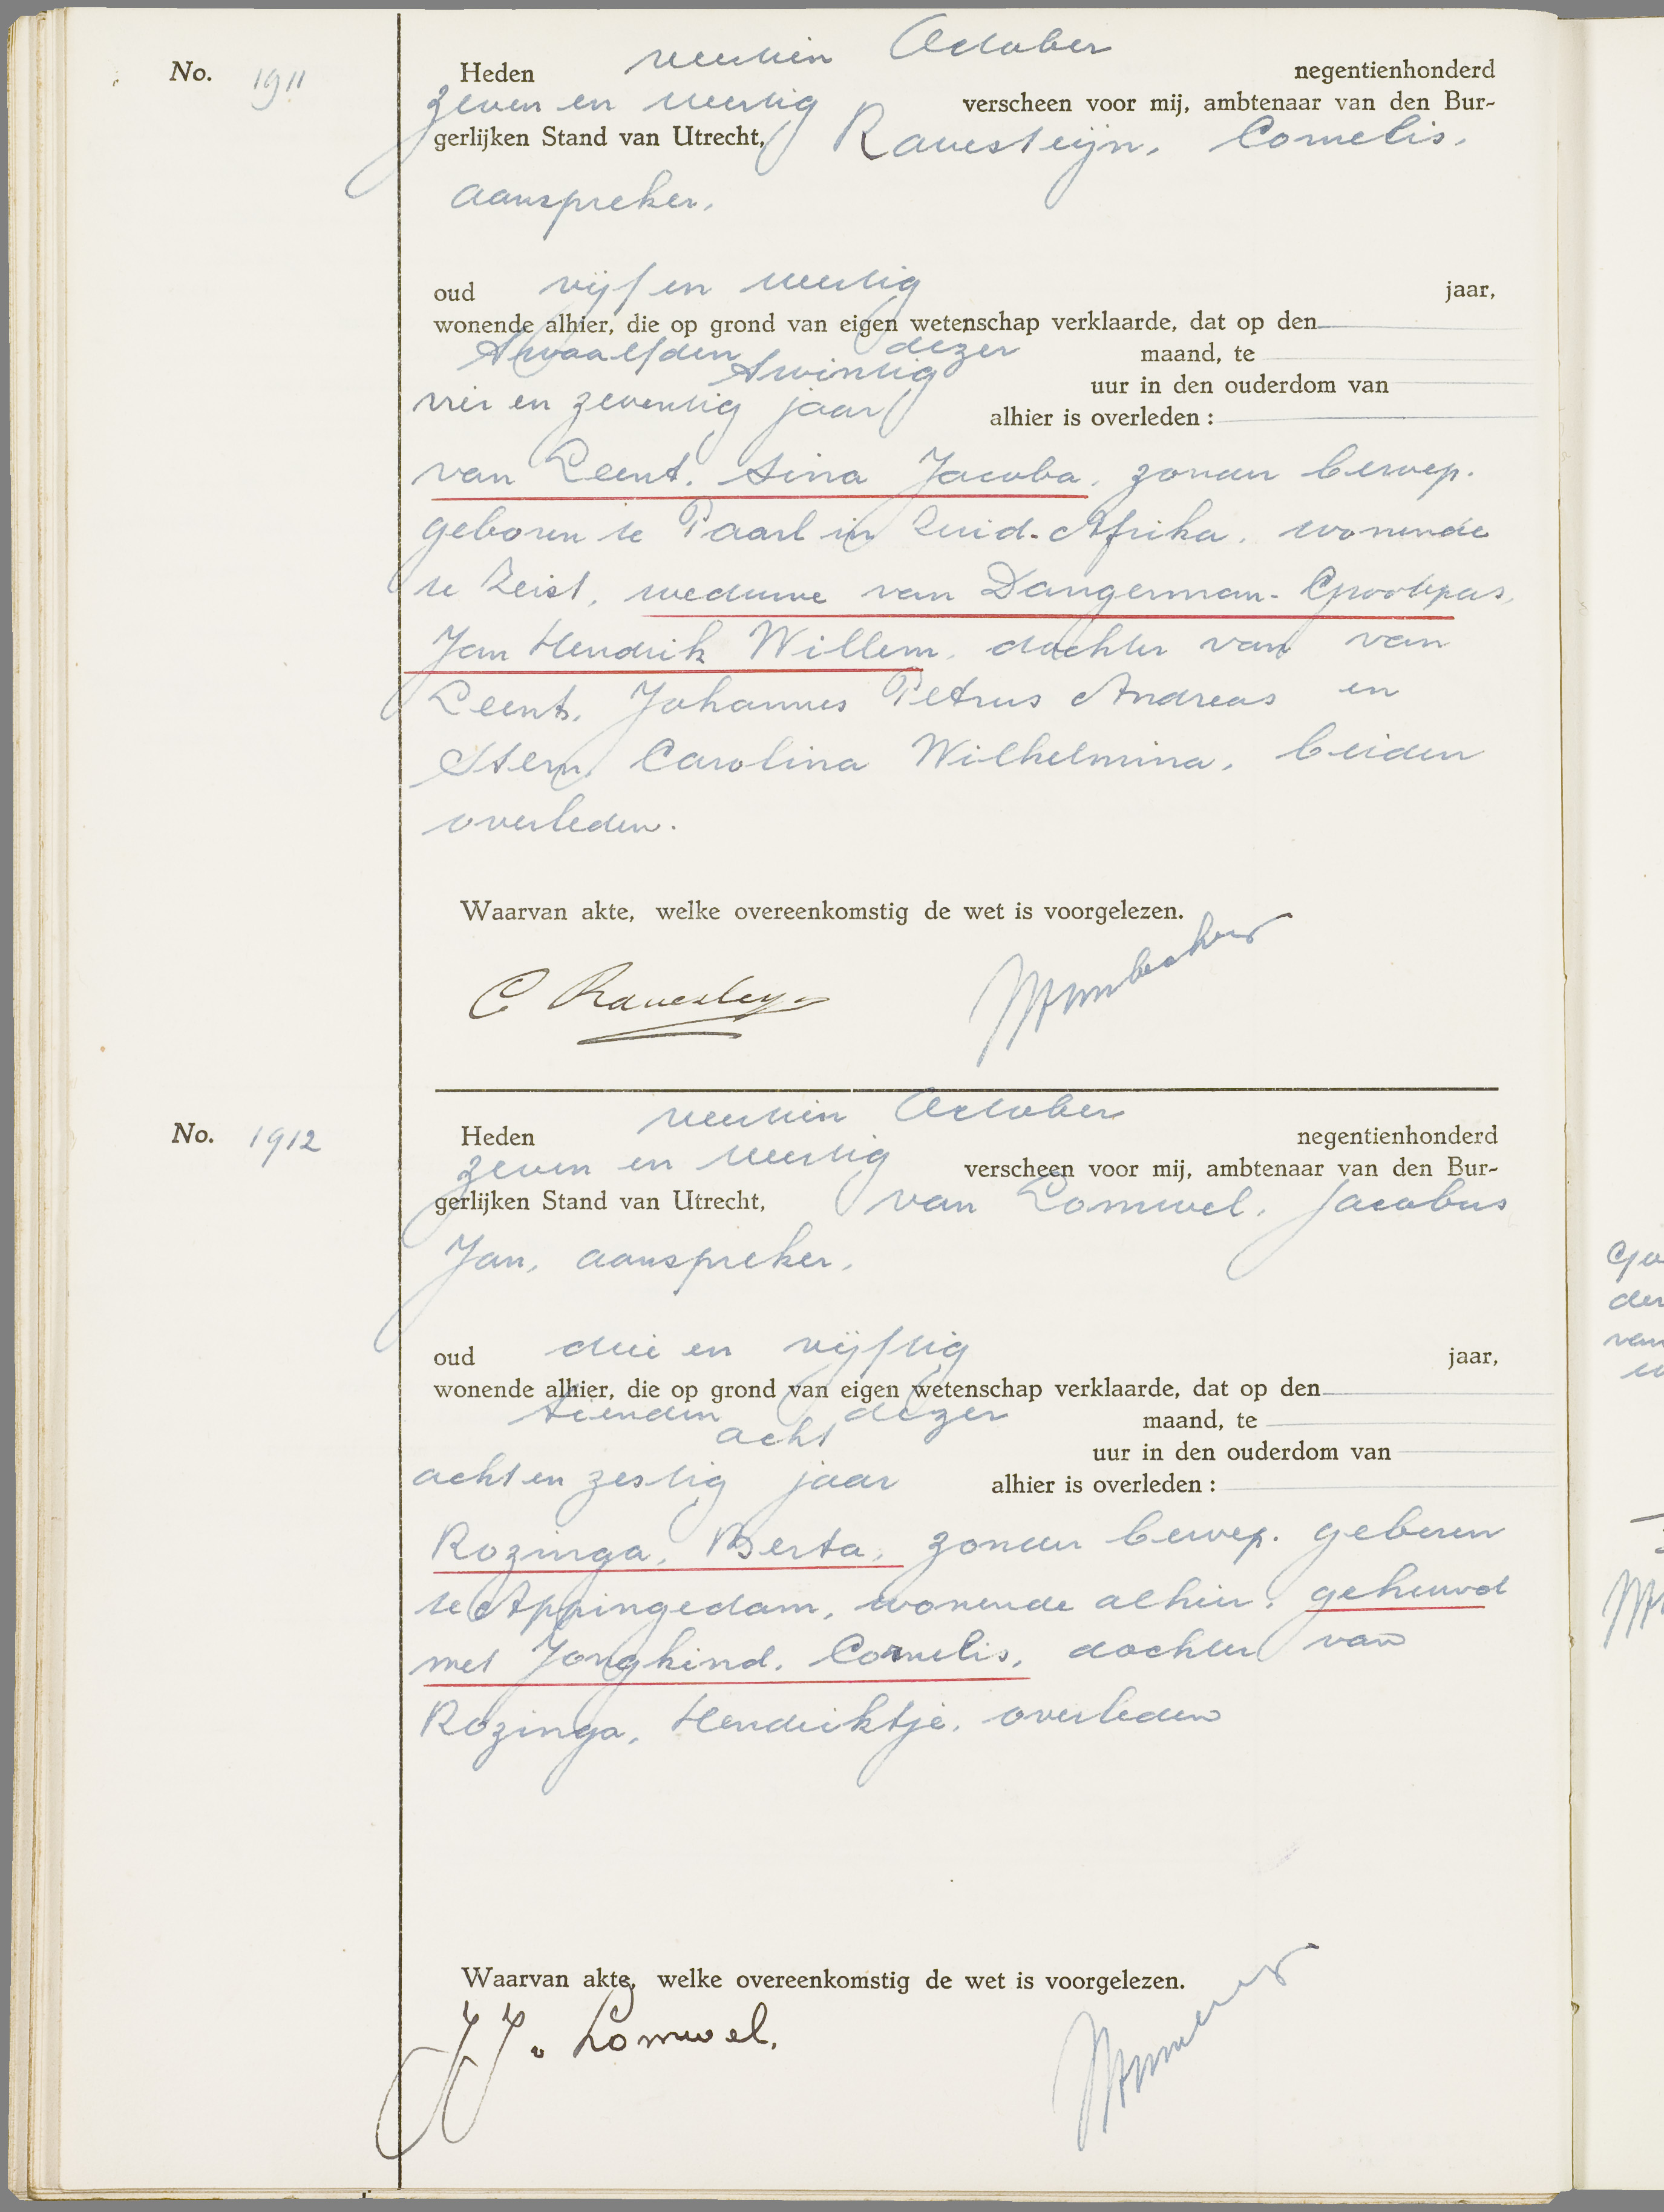 No. 1911
Heden veertien October negentienhonderd
zeven en veertig verscheen voor mij, ambtenaar van den Bur-
gerlijken Stand van Utrecht, Ravesteijn, Cornelis,
aanspreker,
oud vijf en veertig jaar,
wonende alhier, die op grond van eigen wetenschap verklaarde, dat op den
twaalfden dezer maand, te
twintig uur in den ouderdom van
vier en zeventig jaar alhier is overleden :
van Leent, Sina Jacoba, zonder beroep.
geboren te Paarl in Zuid-Afrika, wonende
te Zeist, weduwe van Dangerman-Grootepas,
Jan Hendrik Willem, dochter van van
Leent, Johannes Petrus Andreas en
Stern, Carolina Wilhelmina, beiden
overleden.
Waarvan akte, welke overeenkomstig de wet is voorgelezen.
C Ravesteyn
No. 1912
Heden veertien October negentienhonderd
zeven en veertig verscheen voor mij, ambtenaar van den Bur-
gerlijken Stand van Utrecht, van Lomwel, Jacobus
Jan, aanspreker,
oud drie en vijftig jaar,
wonende alhier, die op grond van eigen wetenschap verklaarde, dat op den
tienden dezer maand, te
acht uur in den ouderdom van
acht en zestig jaar alhier is overleden :
Rozinga, Berta, zonder beroep. geboren
te Appingedam, wonende alhier, gehuwd
met Jongkind, Cornelis, dochter van
Rozinga, Hendriktje, overleden
Waarvan akte, welke overeenkomstig de wet is voorgelezen.
JJ v Lomwel.